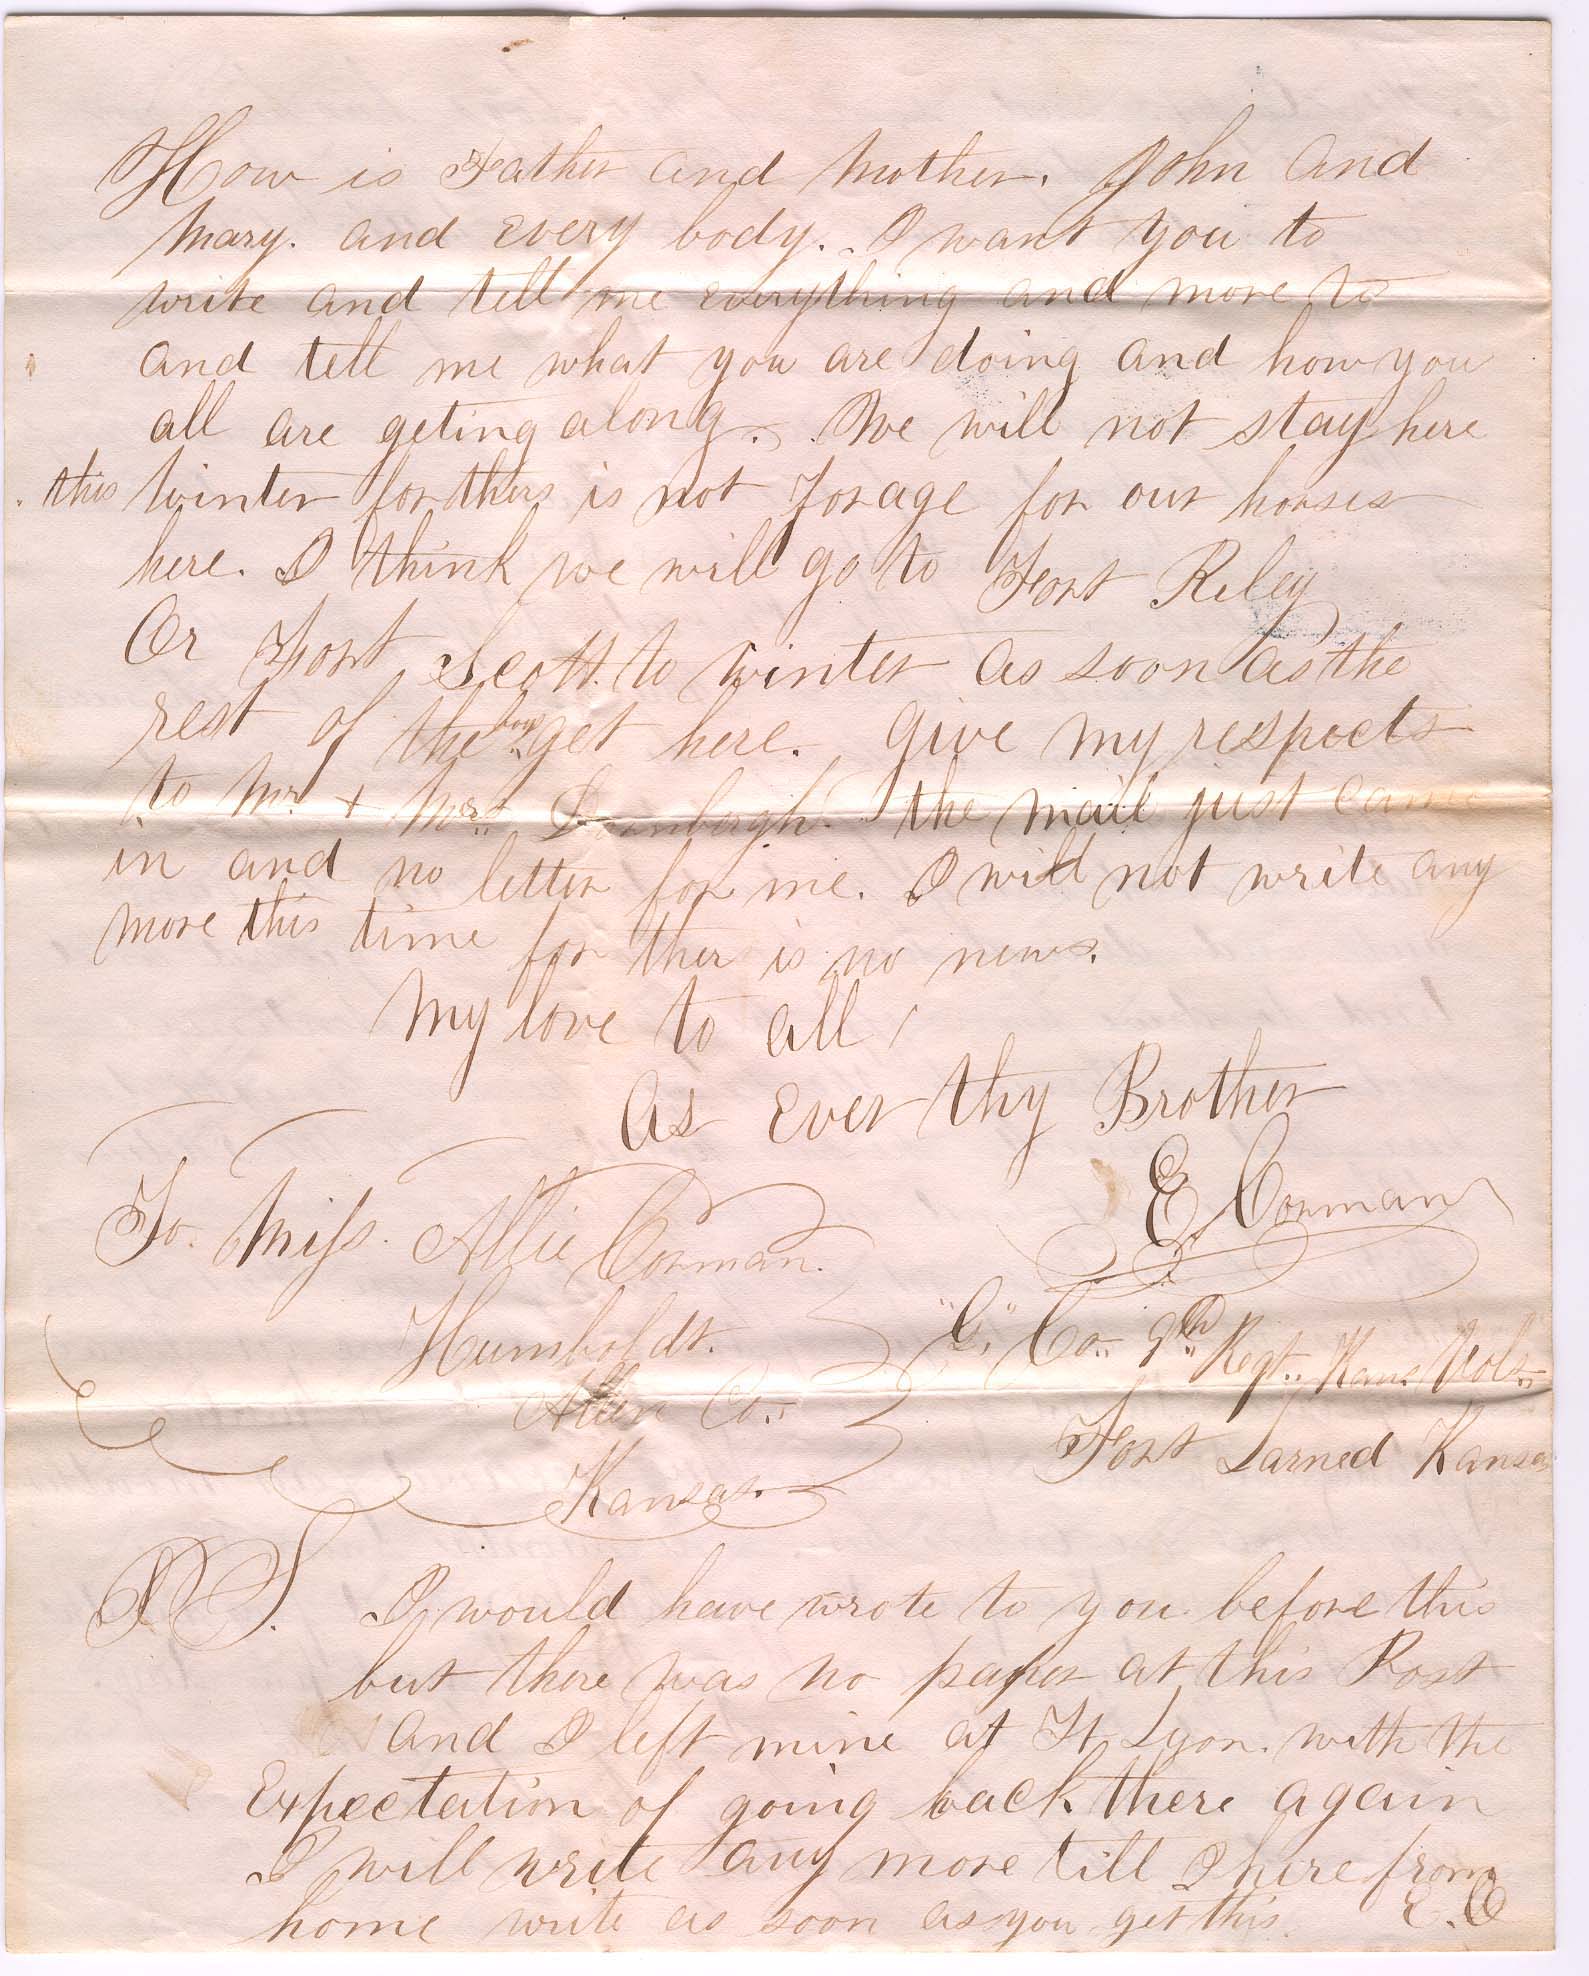 How is Father and Mother. John and
Mary. and every body. I want you to
write and tell me everything and more to
and tell me what you are doing and how you
all are geting along. We will not stay here
this Winter for thers is not Forage for our horses
here. I think we will go to Fort Riley
Or Fort Scott. to winter as soon as the
rest of the boys get here. Give my respects
to Mr. + Mrs. the mail just came
in and no letter for me. I will not write any
more this time for ther is no news.
My love to all
As Ever thy Brother
E. Corman
To. Miss. Allie Corman.
Humboldt.
Allen Co.
Kansas.
"G" Co. 9th Regt. Kans. Vols.
Fort Larned Kansas
P S. I would have wrote to you before this
but there was no paper at this Post
and I left mine at Ft. Lyon. with the
Expectation of going back there again
I will write any more till I here from
home write as soon as you get this. E. C